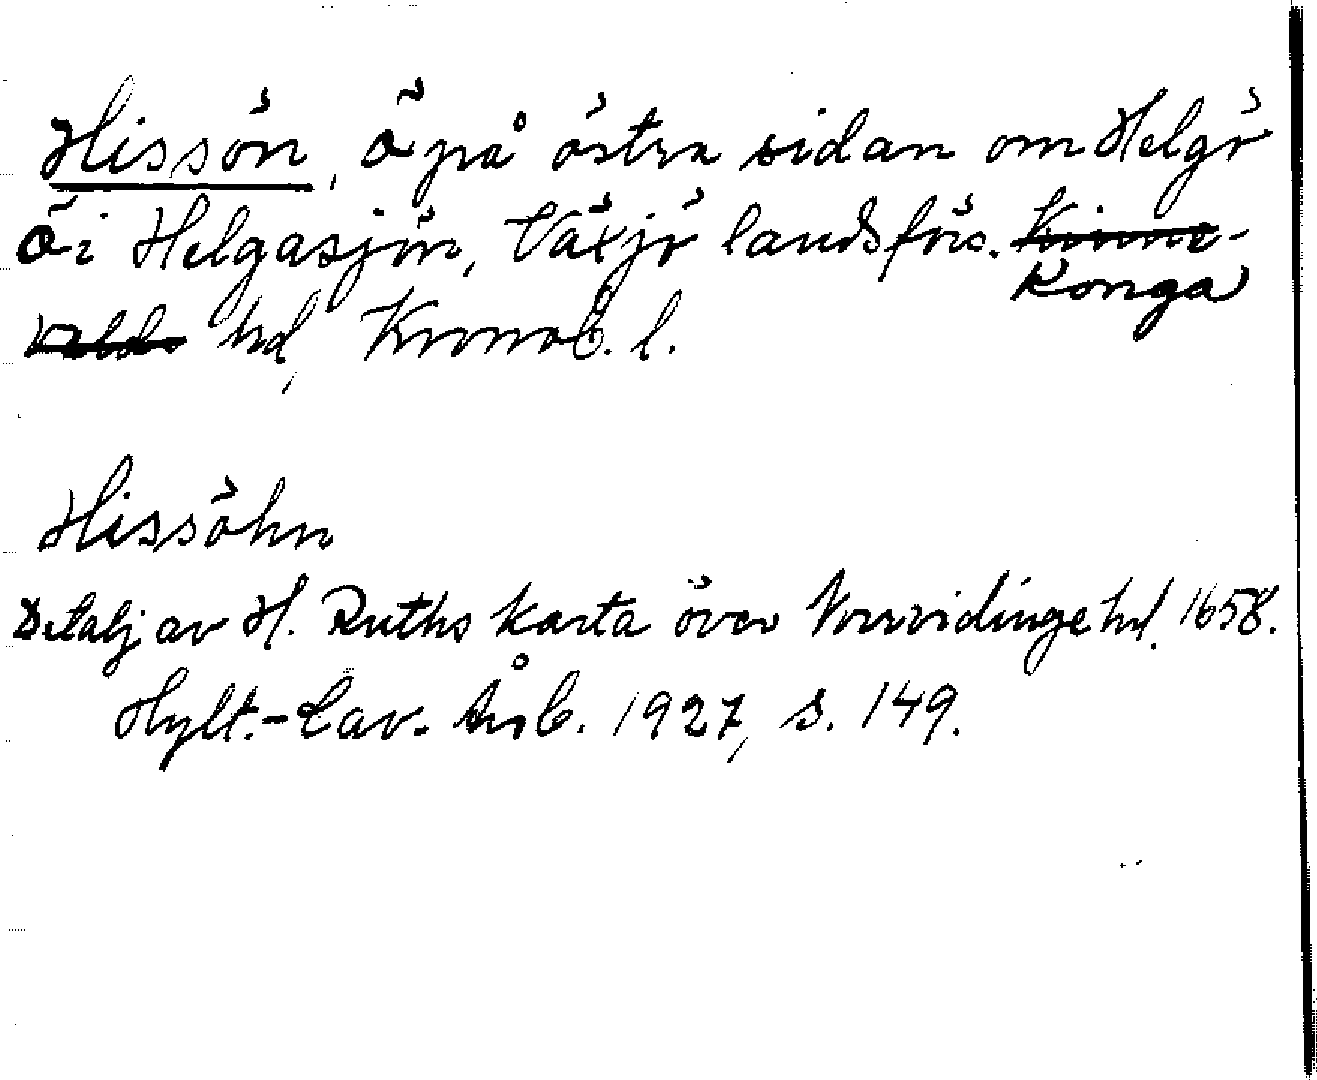 Hissön, ö på östra sidan om Helgö
ö i Helgasjön, Växjö landsförs. Kinne-
Konga
valds hd, Kronob. l.
Hissöhn
Detalj av H. Ruths karta över Norrvidinge hd. 1658.
Hylt.-Cav. Årsb. 1927, s. 149.